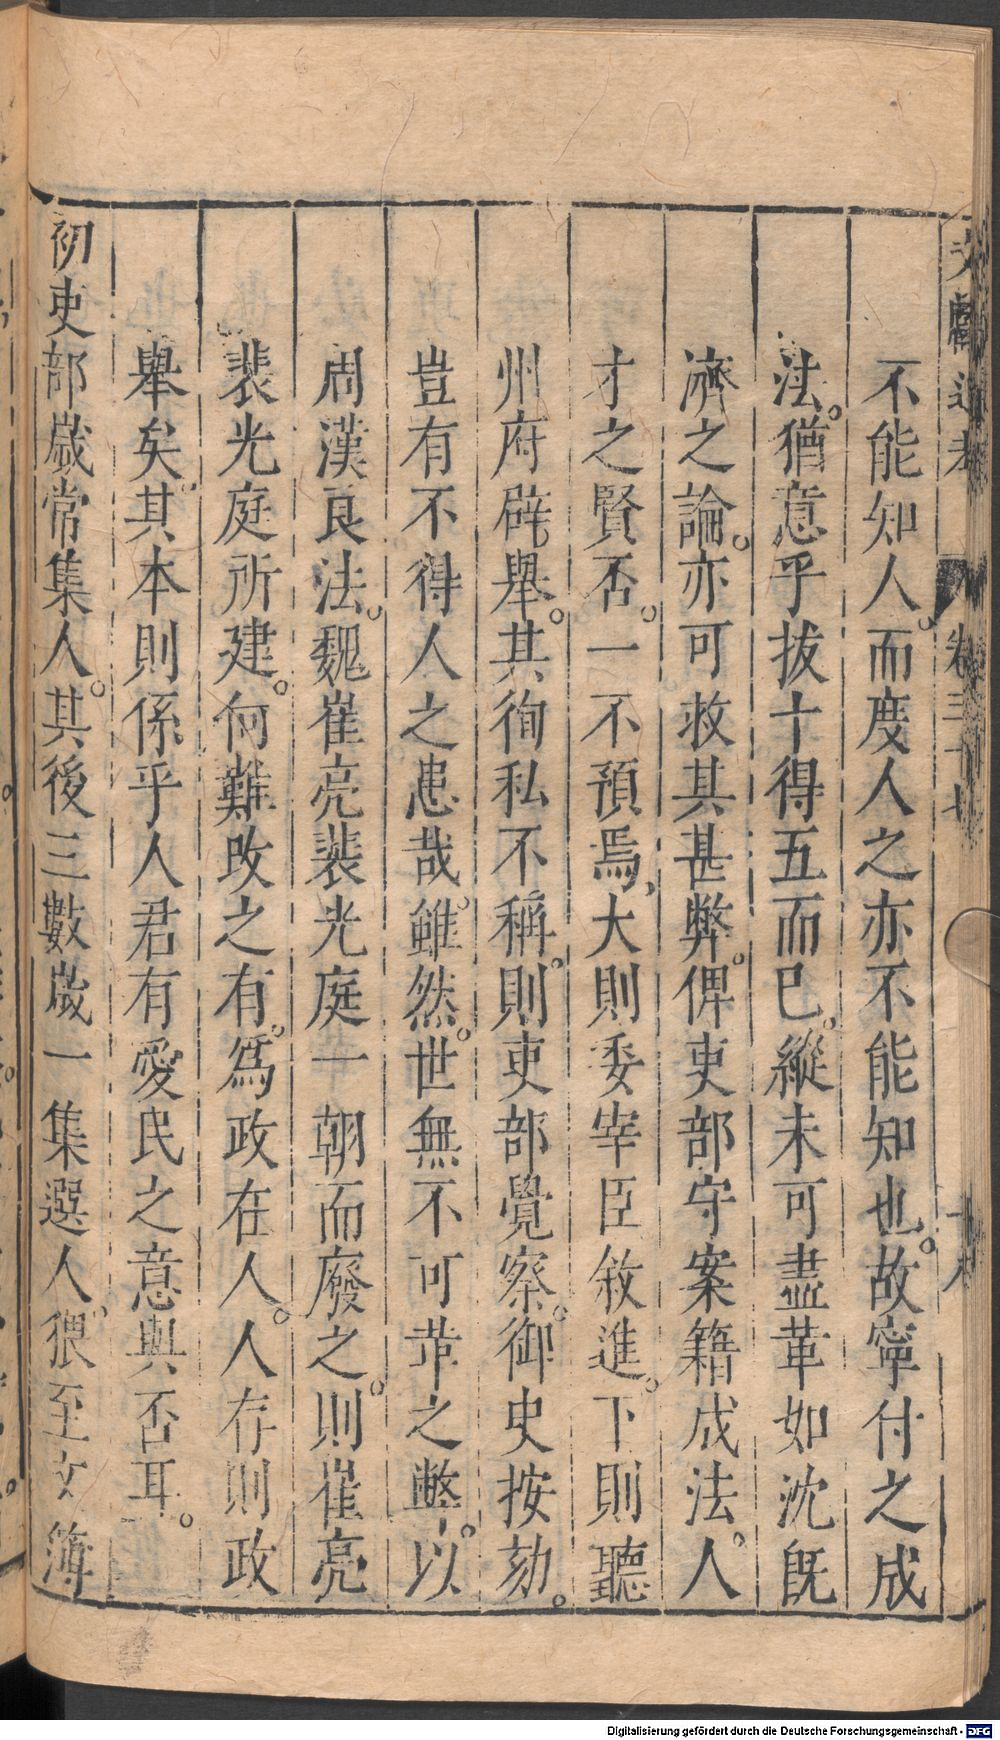 文獻通考 卷三十七 十八
不能知人。而度人之亦不能知也。故寧付之成
法。猶意乎拔十得五而已。縱未可盡革如沈既
濟之論。亦可救其甚弊。俾吏部守案籍成法。人
才之賢否。一不預焉。大則委宰臣敘進。下則聽
州府辟舉。其徇私不稱。則吏部覺察。御史按劾。
豈有不得人之患哉。雖然。世無不可革之弊。以
周漢良法。魏崔亮裴光庭一朝而廢之。則崔亮
裴光庭所建。何難改之有。爲政在人。人存則政
舉矣。其本則係乎人君有愛民之意與否耳。
初吏部歲常集人。其後三數歲一集選人。猥至文簿
Digitalisierung gefördert durch die Deutsche Forschungsgemeinschaft - DFG